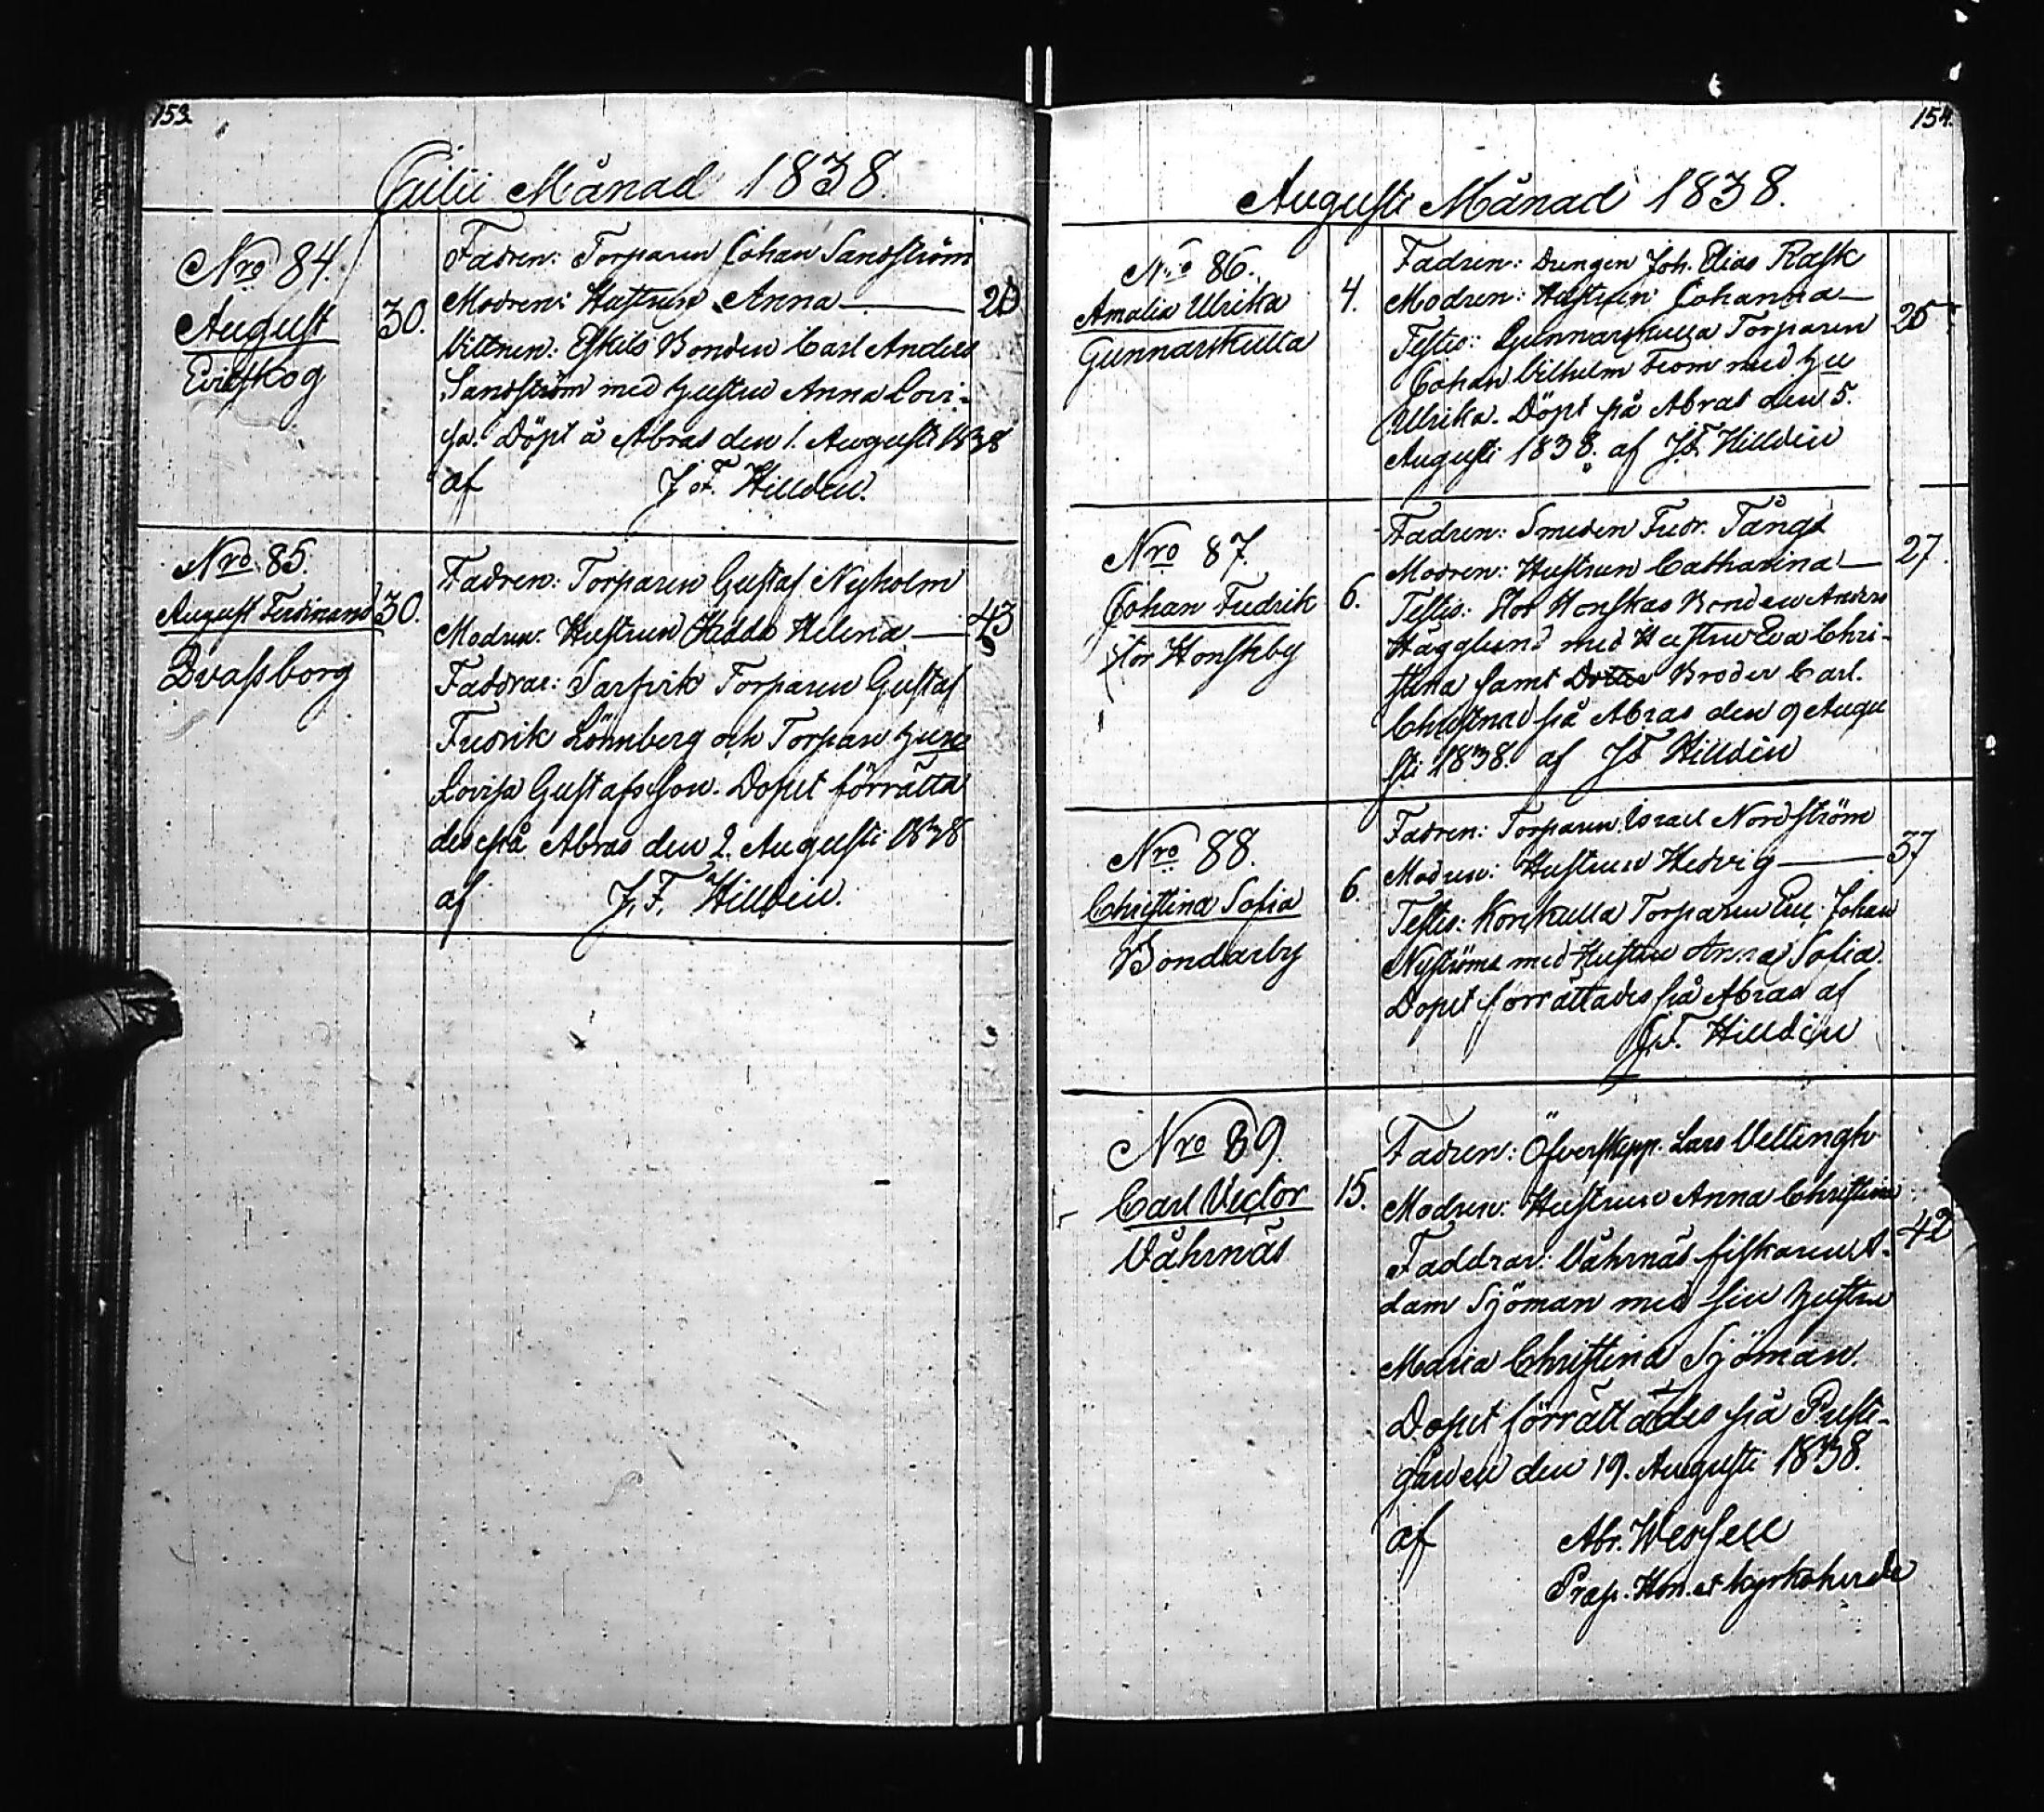 153.
Julii Månad 1838.
Nro 84.
August
Evitskog
30.
Fadren: Torparen Johan Sandström
Modren: Hustrun Anna
Vittnen: Eskils Bonden Carl Anders
Sandström med hustru Anna Lovi-
sa. Döpt å Abras den 1. Augusti 1838
af J. F. Hilldén.
Nro 85.
August Ferdinand
Dvassborg
30.
43
Fadren: Torparen Gustaf Nyholm
Modren: Hustrun Hedda Helena
Faddrar: Sarfvik Torparen Gustaf
Fredrik Lönnberg och Torpare
Lovisa Gustafsson. Dopet förrätta
des på Abras den 2. Augusti 1838
af J. F. Hilldén.
154.
Augusti Månad 1838.
Nro 86.
Amalia Ulrika
Gunnarskulla
4.
Fadren: Drengen Joh. Elias Rask
Modren: Hustrun Johanna
Testis: Gunnarskulla Torparen
Johan Vilhelm From med hu
Ulrika. Döpt på Abras den 5.
Augusti 1838. af J F Hilldén
Nro 87.
Johan Fredrik
Stor Honskby
6.
27
Fadren: Smeden Fredr. Tångt
Modren: Hustrun Catharina
Testis: Stor Honskas Bonden Anders
Hägglund med Hustru Eva Chri-
stina samt Broder Carl.
Christnad på Abras den 9 Augu
sti 1838. af J F Hilldén
Nro 88.
Christina Sofia
Bondarby
6.
37
Fadren: Torparen Israel Nordström
Modren: Hustrun Hedvig
Testis: Korskulla Torparen Eric Johan
Nyström med Hustru Anna Sofia.
Dopet förrättades på Abras af
J. F. Hilldén
Nro 89.
Carl Victor
Våhrnäs
15.
42
Fadren: Öfverskepp. Lars Vellingk
Modren: Hustrun Anna Christina
Faddrar: Våhrnäs fiskaren A-
dam Sjöman med sin hustru
Maria Christina Sjöman.
Dopet förrättades på Prest-
gården den 19. Augusti 1838.
af Abr.
Prap. Hon. et kyrkoherde